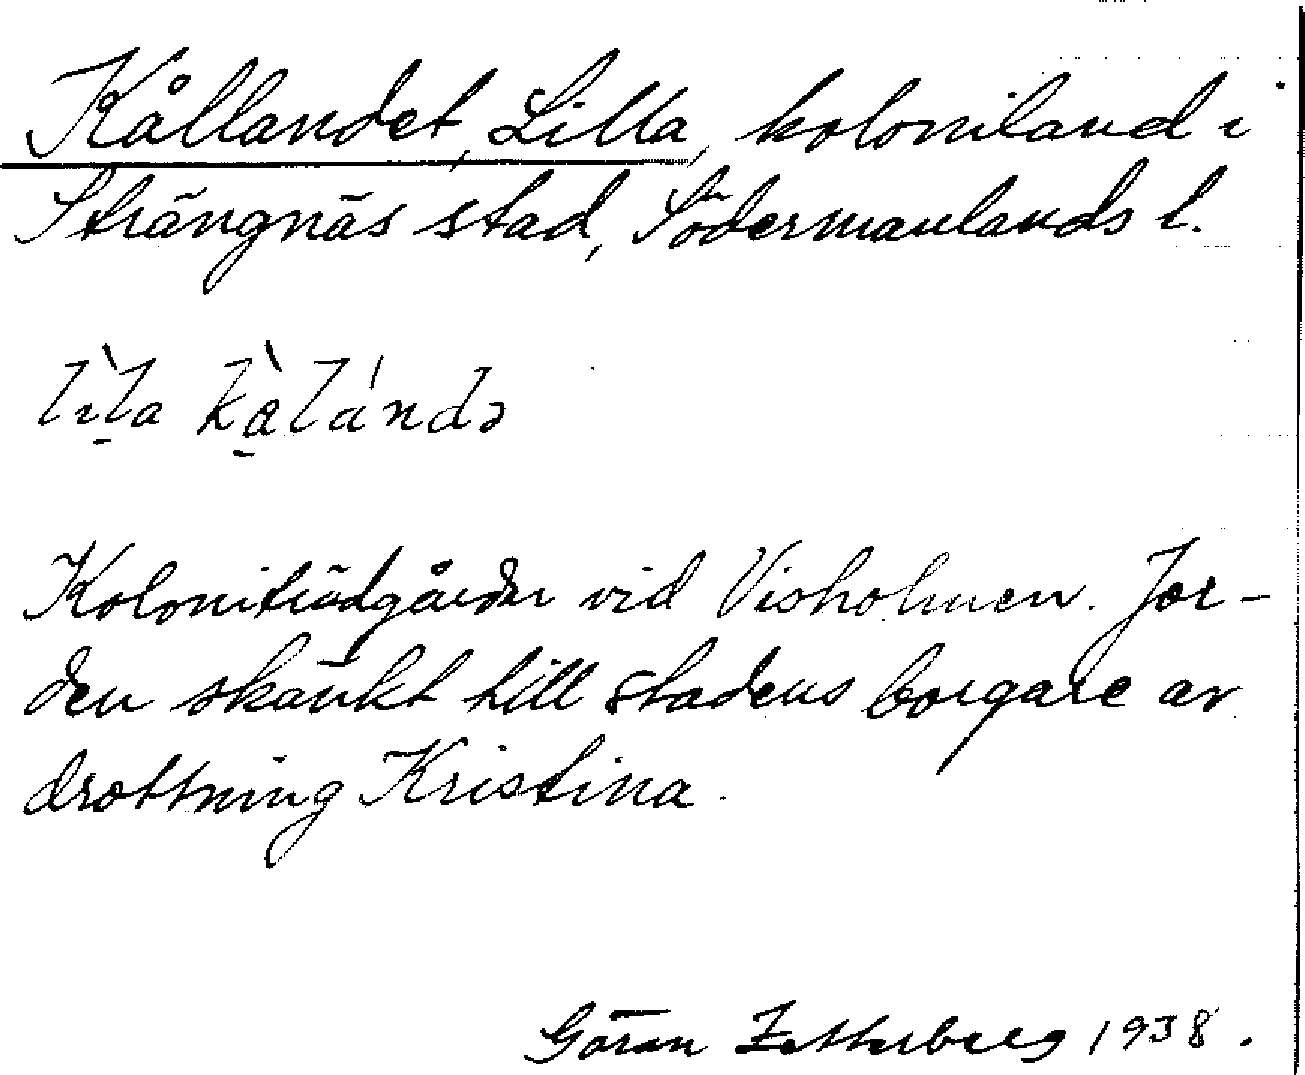 Kållandet, Lilla, koloniland i
Strängnäs stad, Södermanlands l.
Koloniträdgårdar vid Visholmen. Jor-
den skänkt till stadens borgare av
drottning Kristina.
Göran Zetterberg 1938.